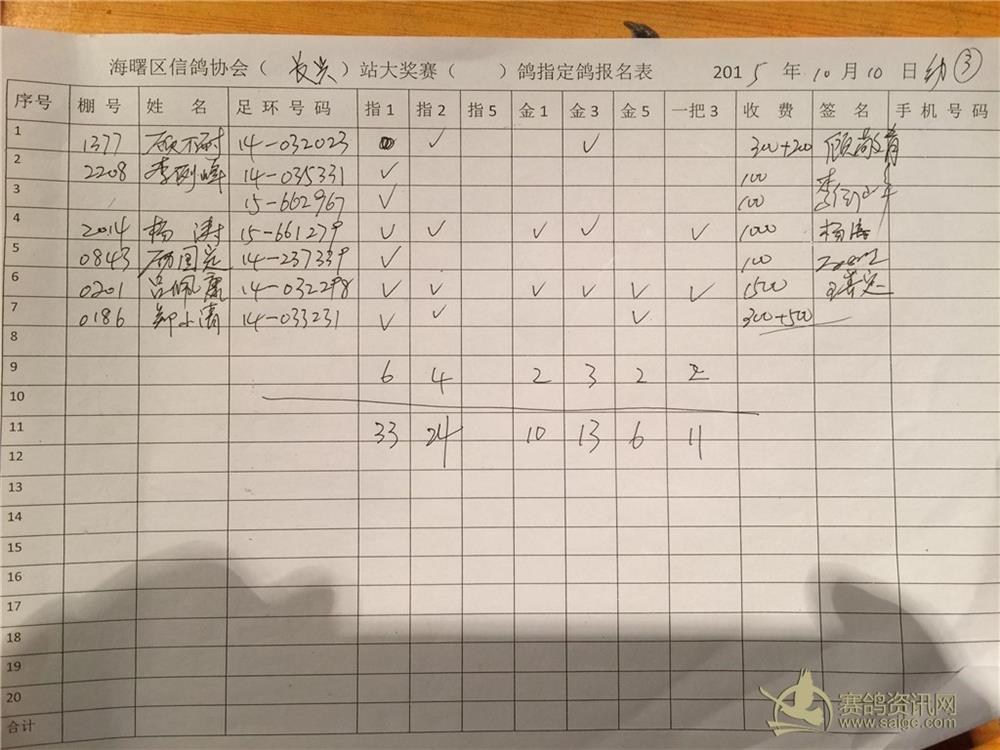 海曙区信鸽协会（长兴）站大奖赛（ ）鸽指定鸽报名表 2015年10月10日 幼③
序号 棚号 姓名 足环号码 指1 指2 指5 金1 金3 金5 一把3 收费 签名 手机号码
1 1377 14-032023 ✓ ✓ 300+200
2 2208 14-035331 ✓ 100
3 15-662967 ✓ 100
4 2014 杨涛 15-661279 ✓ ✓ ✓ ✓ ✓ 1000 杨涛
5 0843 14-237339 ✓ 100
6 0201 吕佩康 14-032298 ✓ ✓ ✓ ✓ ✓ ✓ 1500
7 0186 郑小清 14-033231 ✓ ✓ ✓ 300+500
8
9 6 4 2 3 2 2
10
11 33 24 10 13 6 11
12
13
14
15
16
17
18
19
20
合计
赛鸽资讯网
www.saigc.com